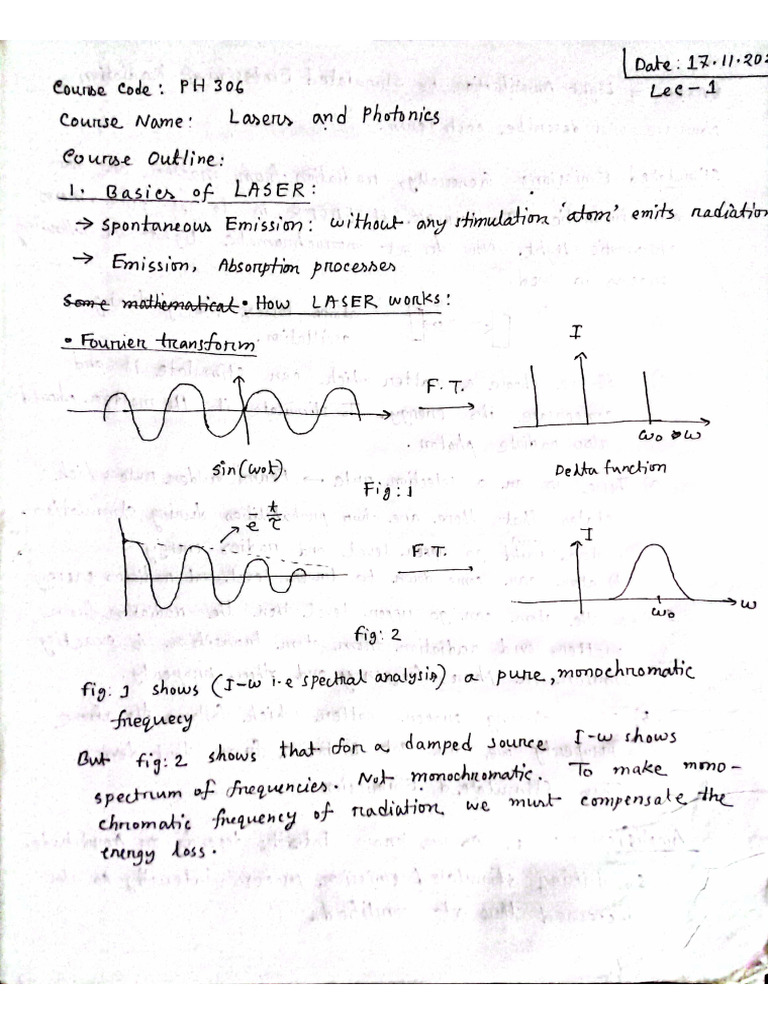 Date: 17.11.20
Lec-1
Course Code: PH 306
Course Name: Lasers and Photonics
Course Outline:
1. Basics of LASER:
→ Spontaneous Emission: without any stimulation 'atom' emits radiation
→ Emission, Absorption processes
Some mathematical • How LASER works:
• Fourier transform
F.T.
I
ω₀ → ω
sin(ω₀t)
Delta function
Fig: 1
e^-t/τ
F.T.
I
ω₀
ω
fig: 2
fig: 1 shows (I-ω i.e spectral analysis) a pure, monochromatic
frequecy
But fig: 2 shows that for a damped source I-ω shows
spectrum of frequencies. Not monochromatic. To make mono-
chromatic frequency of radiation we must compensate the
energy loss.